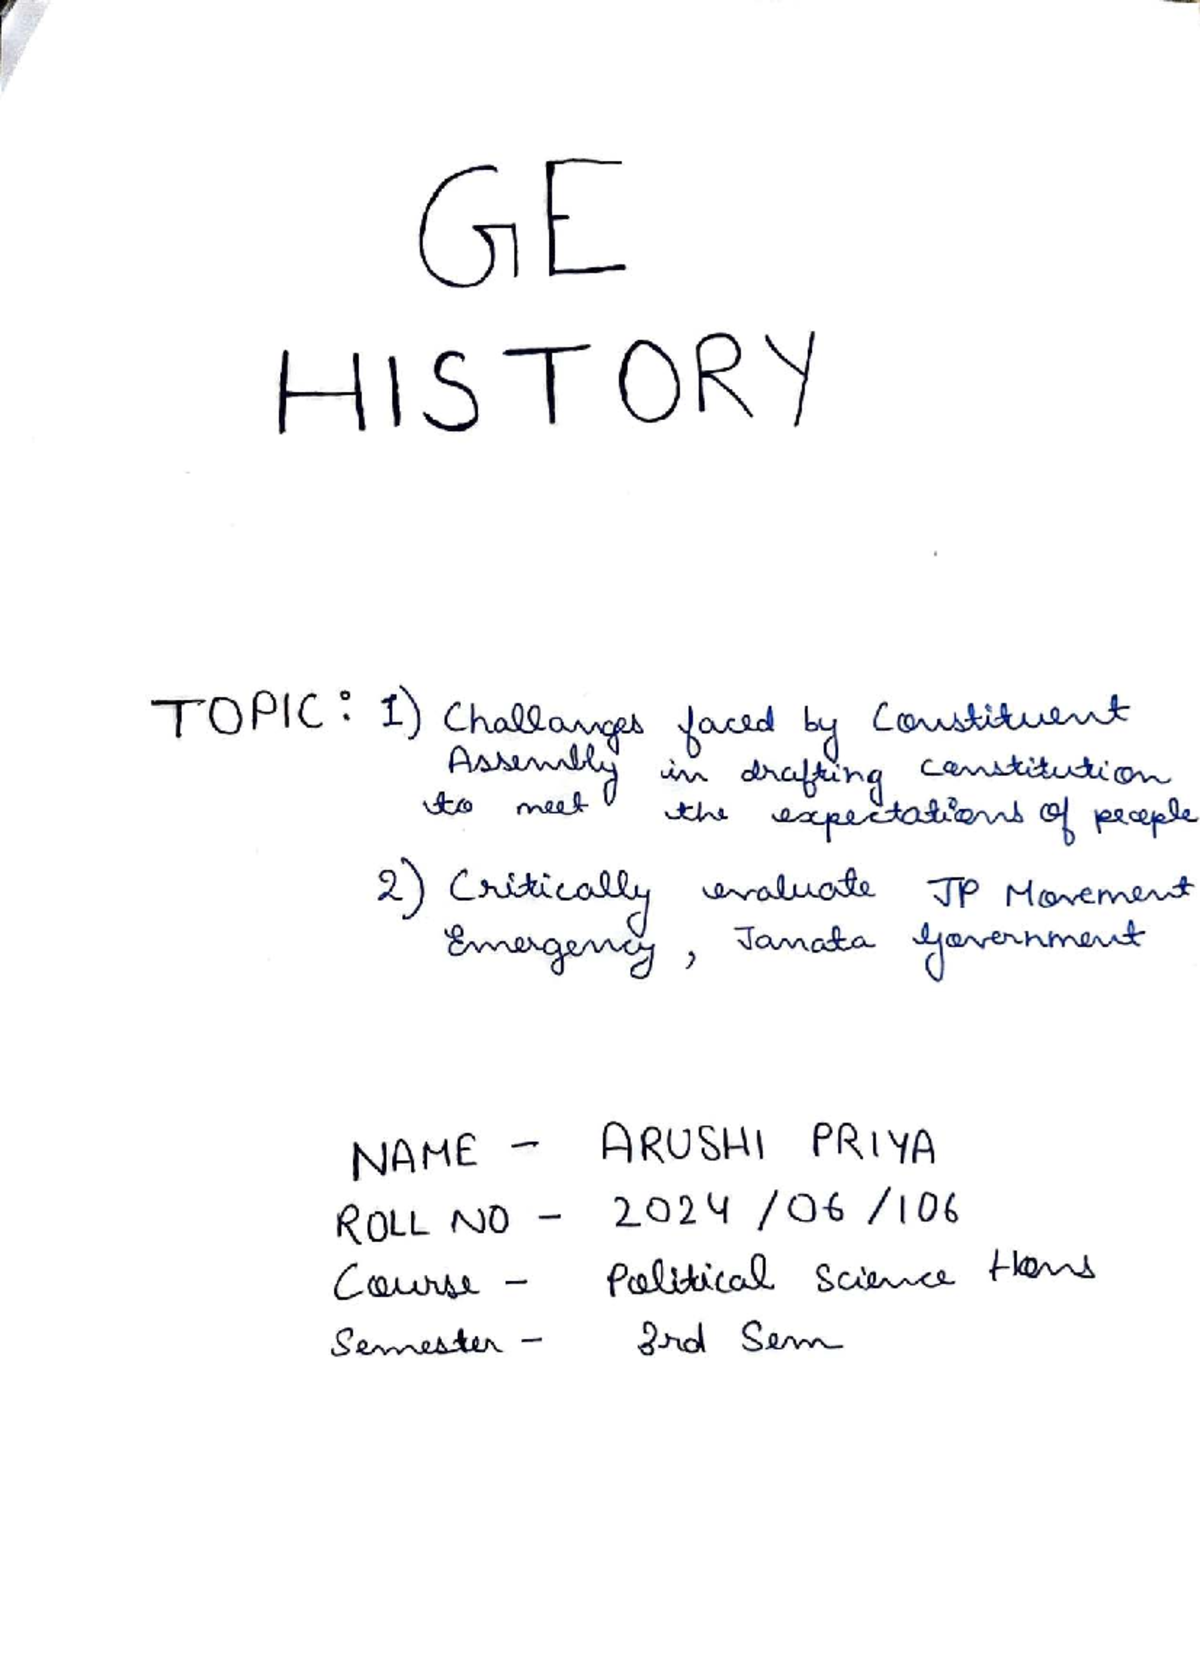 GE
HISTORY
TOPIC: 1) Challanges faced by Constituent
Assembly in drafting constitution
to meet the expectations of people
2) Critically evaluate JP Movement
Emergency, Janata Government
NAME - ARUSHI PRIYA
ROLL NO - 2024/06/106
Course - Political Science Hons
Semester - 3rd Sem